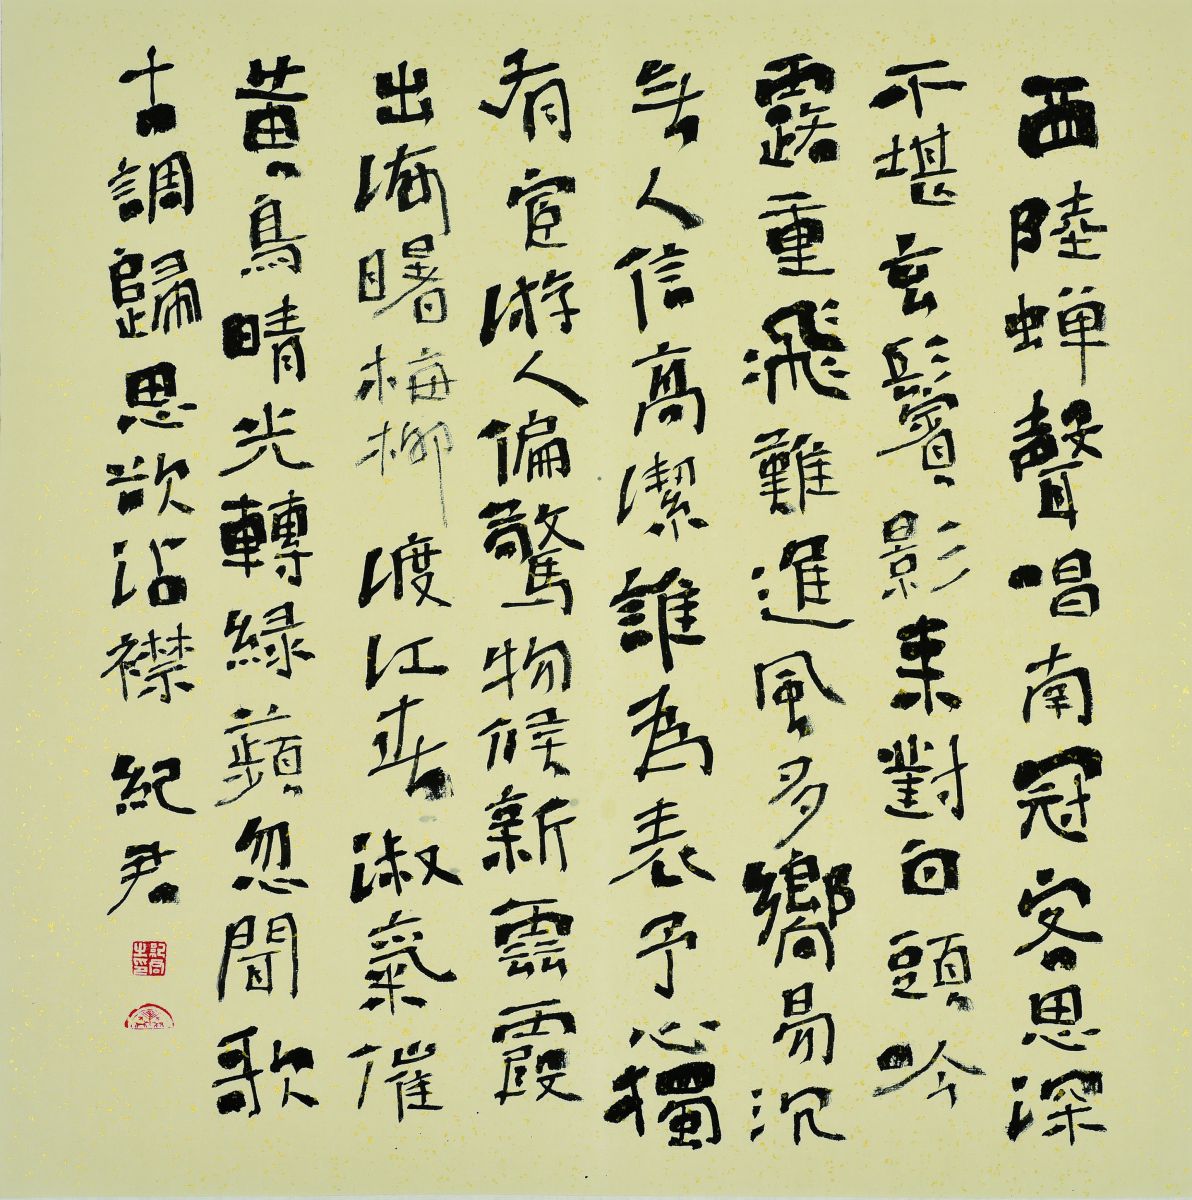 西陸蝉聲唱南冠客思深
不堪玄鬢影來對白頭吟
露重飛難進風多響易沉
無人信高潔誰為表予心獨
有宦游人偏驚物候新雲霞
出海曙梅柳渡江春淑氣催
黃鳥晴光轉綠蘋忽聞歌
古調歸思欲沾襟 紀君
紀君之印